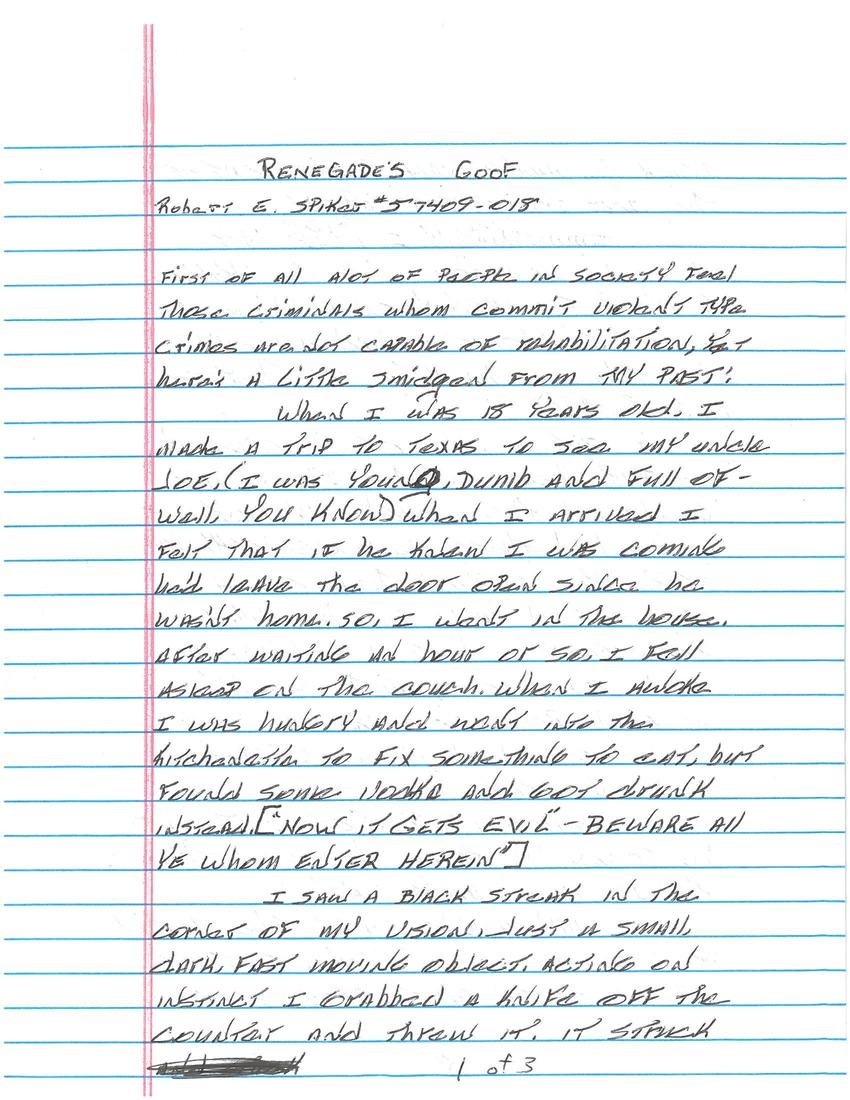 RENEGADE'S GOOF
Robert E. Spiker #57409-018
First of all alot of people in society feel
those criminals whom commit violent type
crimes are not capable of rehabilitation, yet
here's a little smidgen from my past:
When I was 18 years old. I
made a trip to Texas to see my uncle
Joe, (I was young, dumb and full of-
well, you know) when I arrived I
felt that if he knew I was coming
he'd leave the door open since he
wasn't home. So, I went in the house.
After waiting an hour or so, I fell
asleep on the couch. When I awoke
I was hungry and went into the
kitchenette to fix something to eat, but
found some vodka and got drunk
instead. ["Now it gets evil" - BEWARE All
Ye whom ENTER HEREIN"]
I saw a black streak in the
corner of my vision, Just a small,
dark, fast moving object. Acting on
instinct I grabbed a knife off the
counter and threw it. It struck
1 of 3